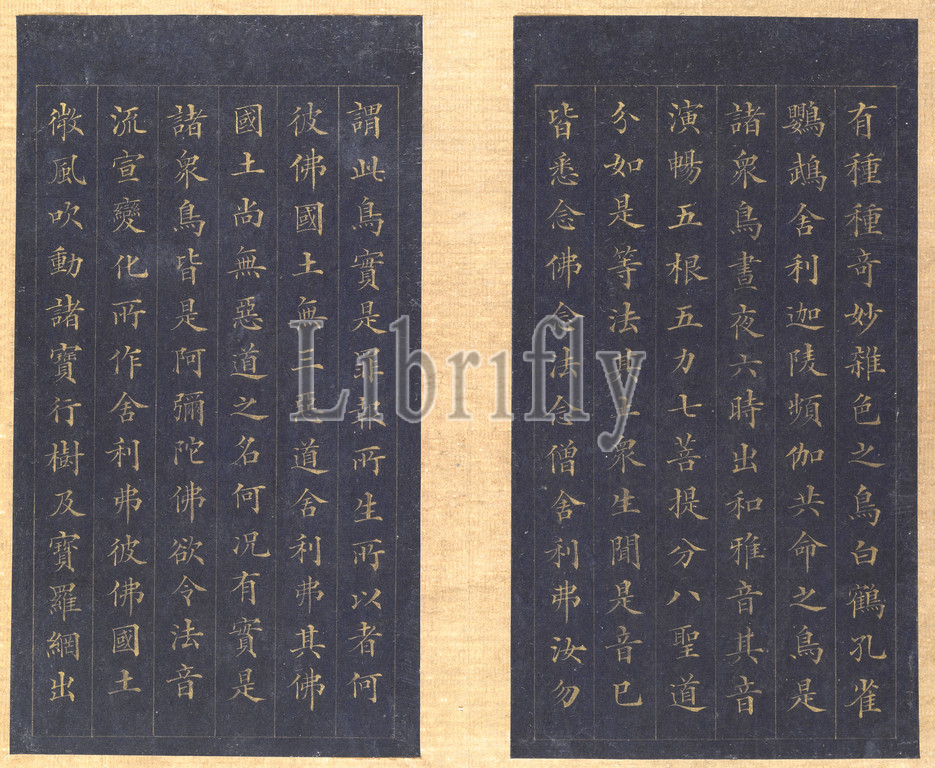 有種種奇妙雜色之鳥白鶴孔雀
鸚鵡舍利迦陵頻伽共命之鳥是
諸衆鳥晝夜六時出和雅音其音
演暢五根五力七菩提分八聖道
分如是等法其土衆生聞是音已
皆悉念佛念法念僧舍利弗汝勿
謂此鳥實是罪報所生所以者何
彼佛國土無三惡道舍利弗其佛
國土尚無惡道之名何况有實是
諸衆鳥皆是阿彌陀佛欲令法音
流宣變化所作舍利弗彼佛國土
微風吹動諸寶行樹及寶羅網出
Librifly